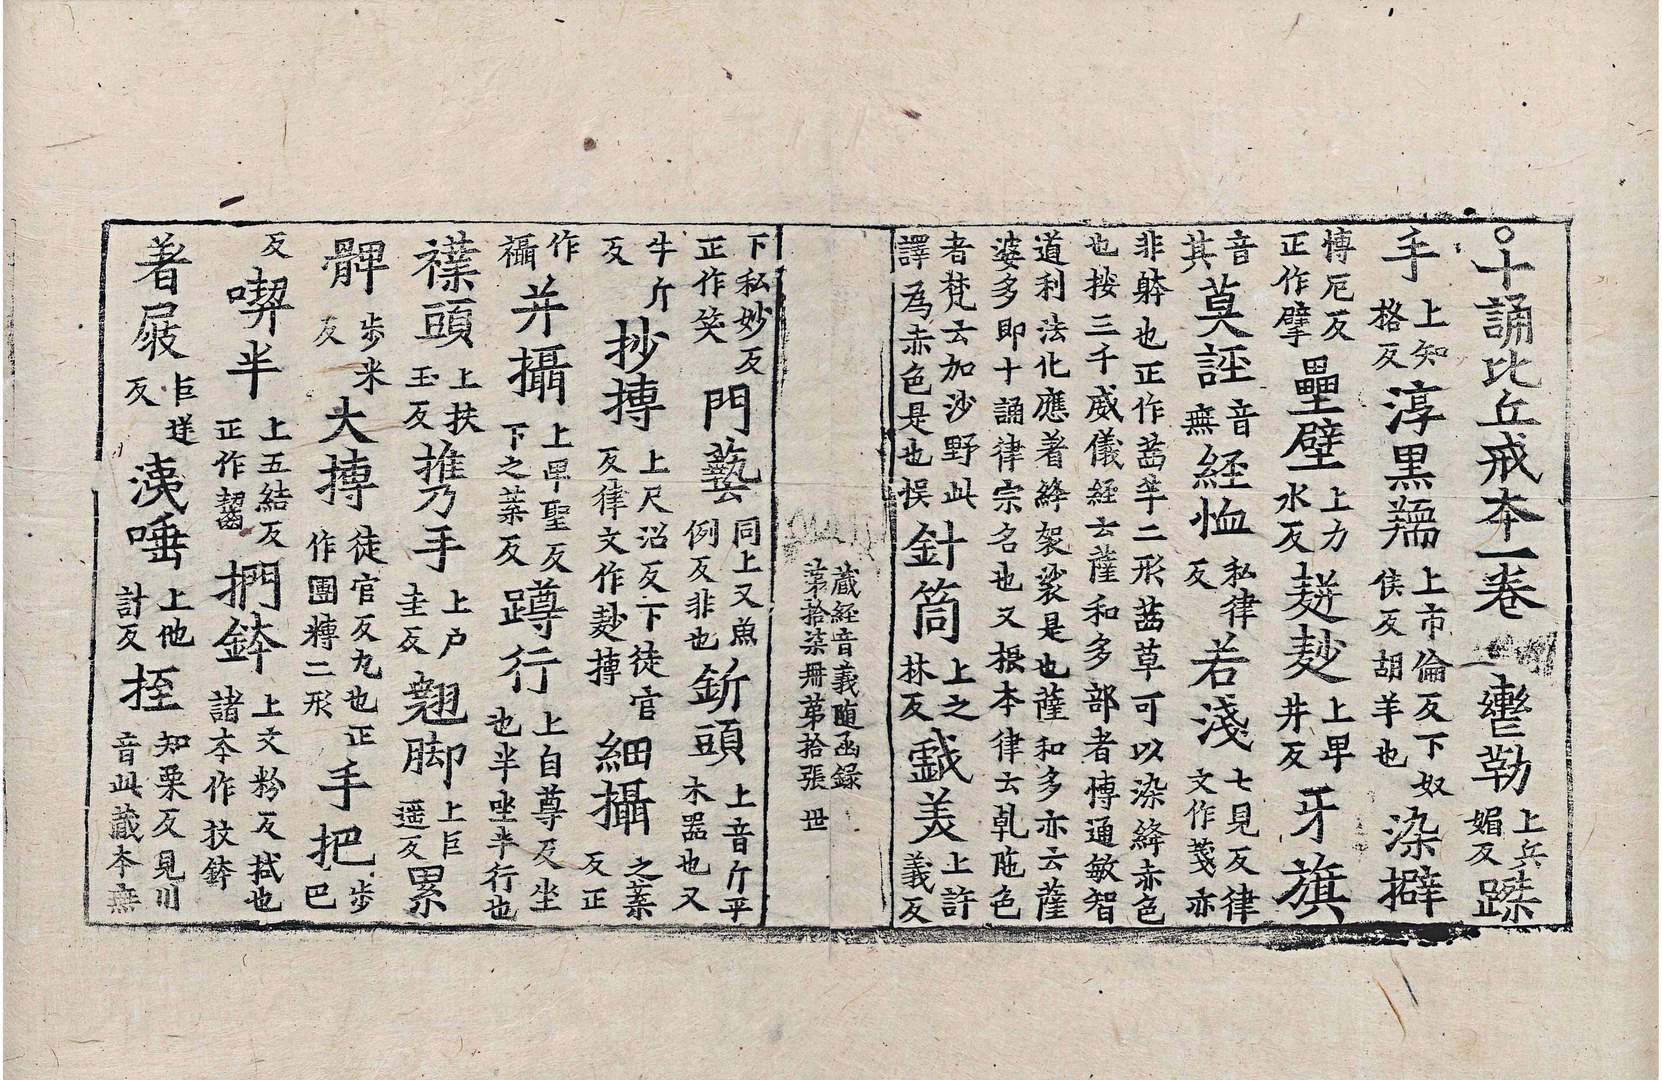 ○十誦比丘戒本一卷 轡勒上兵媚反蹂
手上知格反淳黑羺上市倫反下奴侯反胡羊也染擗
博厄反正作擘壘壁上力水反䴵麨上卑井反牙旗
音其莫誣音無經恤私律反若淺七見反律文作䇳亦
非䠶也正作茜芉二形茜草可以染絳赤色
也按三千威儀經云薩和多部者博通敏智
道利法化應著絳袈裟是也薩和多亦云薩
婆多即十誦律宗名也又根本律云乹陁色
者梵云加沙野此譯為赤色是也悮針筒上之林反戱美上許義反
藏經音義随函録第拾柒冊第拾張 世
下私妙反正作笑門藝同上又魚例反非也釿頭上音斤平木器也又
牛斤反抄摶上尺沼反下徒官反律文作麨摶細攝之葉反正
作襵并攝上卑聖反下之葉反蹲行上自尊反坐也半坐半行也
襆頭上扶玉反㩗手上户圭反翹脚上巨遥反累
髀步米反大摶徒官反丸也正作團䊜二形手把步巴
反喫半上五結反正作齧捫鉢上文粉反拭也諸本作抆鉢
著屐巨逆反洟唾上他計反挃知栗反見川音此藏本無